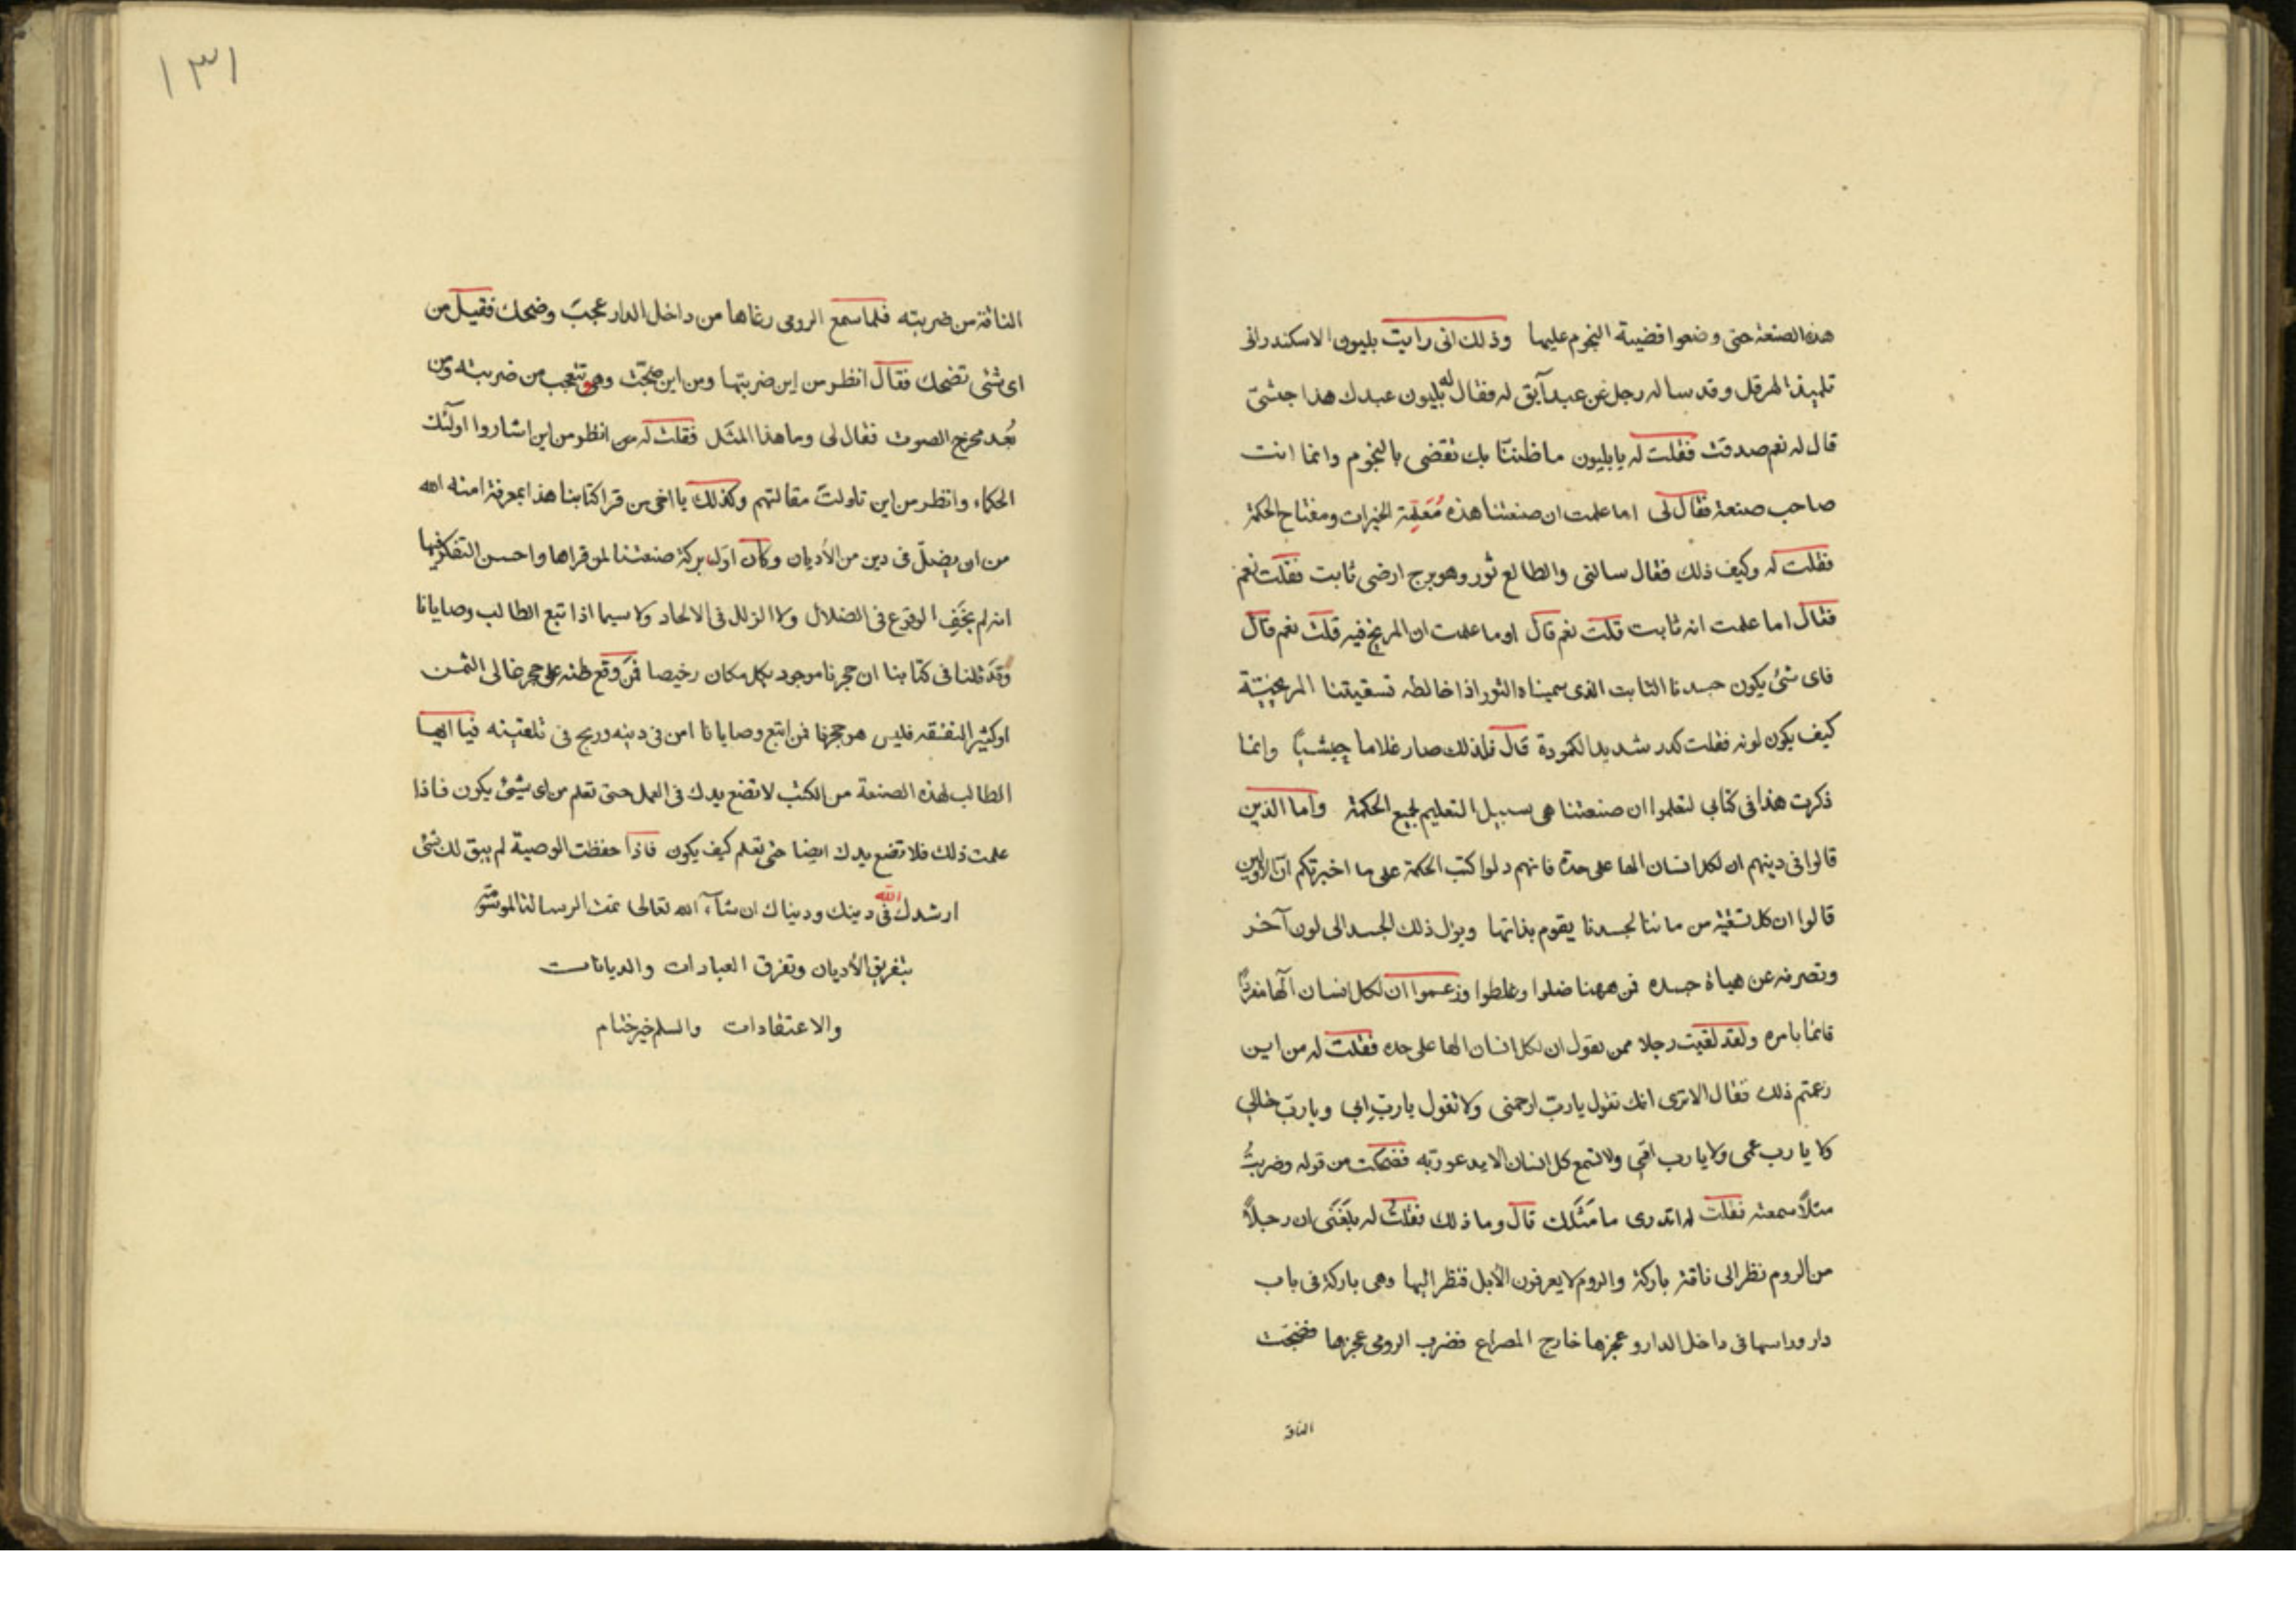 هذه الصنعة حتى وضعوا قضية النجوم عليها وذلك انى رايت بليون الاسكندرانى
تلميذ الهرقل وقد ساله رجل عن عبد آبق له فقال له بليون عبدك هذا حبشى
قال له نعم صدقت فقلت له يا بليون ما ظننتا بك تقضى بالنجوم وانما انت
صاحب صنعة فقال لى اما علمت ان صنعتنا هذه مُعَلِمة الخيرات ومفتاح الحكمة
فقلت له وكيف ذلك فقال سالنى والطالع ثور وهو برج ارضى ثابت فقلت نعم
فقال اما علمت انه ثابت قلت نعم قال اوما علمت ان المريخ فيه قلت نعم قال
فاى شئ يكون جسدنا الثابت الذى سميناه الثور اذا خالطه تسقيتنا المريخيتة
كيف يكون لونه فقلت كدر شديد الكمودة قال فلذلك صار غلاما حبشيًا وانما
ذكرت هذا فى كتابى لتعلموا ان صنعتنا هى سبيل التعليم لجميع الحكمة واما الذين
قالوا فى دينهم ان لكل انسان الها على حدة فانهم دلوا كتب الحكمة على ما اخبرتكم ان الاولين
قالوا ان كل تسقية من مائنا لجسدنا يقوم بذاتها ويؤل ذلك الجسد الى لون آخر
وتصرفه عن هيأة جسده فمن ههنا ضلوا وغلطوا وزعموا ان لكل انسان آلها منفردًا
قائما بامره ولقد لقيت رجلا ممن يقول ان لكل انسان الها على حده فقلت له من اين
زعمتم ذلك فقال الا ترى انك تقول يا ربّ ارحمنى ولا تقول يا ربّ ابى ويا ربّ خالى
كلا يا رب عمى ولا يا رب امّى ولا تسمع كل انسان الا يدعو ربّه فضحكت من قوله وضربتُ
مثلاً سمعته فقلت له اتدرى ما مَثَلك قال وما ذلك فقلت له بلغنى ان رجلاً
من الروم نظر الى ناقة باركة والروم لا يعرفون الأبل فنظر اليها وهى باركة فى باب
دار وراسها فى داخل الدار وعجزها خارج المصراع فضرب الرومى عجزها فضجّت
الناقة
١٣١
الناقة من ضربته فلما سمع الرومى رغاها من داخل الدار عجبَ وضحك فقيل من
اى شئى تضحك فقال انظر من اين ضربتها ومن اين ضجّت وهو تتعجب من ضربته ومن
بُعد مخرج الصوت فقال لى وما هذا المثَل فقلت له من انظر من اين اشاروا اولٓئك
الحكماء وانظر من اين تاولتَ مقالتهم وكذلك يا اخى من قرا كتابنا هذا بمعرفة امنه الله
من ان يضلّ فى دين من الأديان وكان اوّل بركة صنعتنا لمن قراها واحسن التفكر فيها
انه لم يخَفِ الوقوع فى الضلال ولا الزلل فى الالحاد ولا سيما اذا تبع الطالب وصايانا
وقد قلنا فى كتابنا ان حجرنا موجود بكل مكان رخيصا فمَن وقع ظنه على حجر غالى الثمن
او كثير النفقه فليس هو حجرنا فمن اتبع وصايانا امن فى دينه وربح فى تلقينه فيا ايها
الطالب لهذه الصنعة من الكتب لا تضع يدك فى العمل حتى تعلم من اى شيئ يكون فاذا
علمت ذلك فلا تضع يدك ايضا حتى تعلم كيف يكون فاذا حفظت الوصية لم يبق لك شئى
ارشدك الله فى دينك ودنياك ان شآء الله تعالى تمت الرسالة الموشّية
بتفريق الأديان وتفرق العبادات والديانات
والاعتقادات والسلم خير ختام